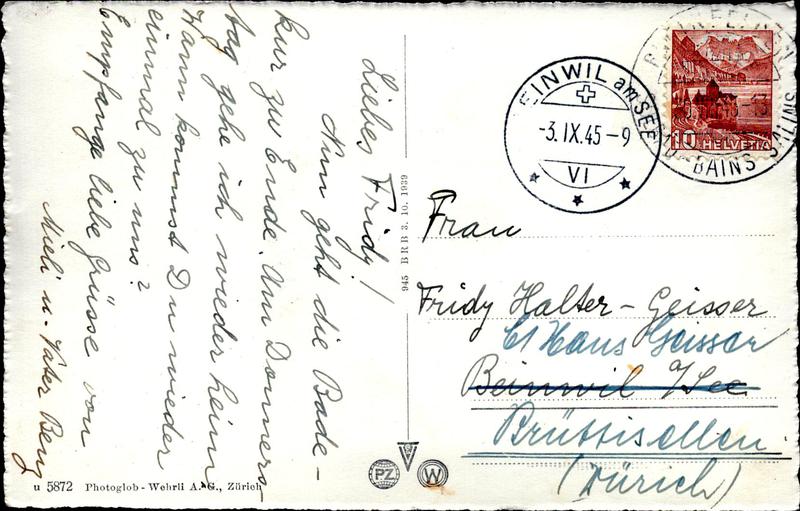 Liebes Fridy!
Nun geht die Bade-
kur zu Ende. Am Donners-
tag gehe ich wieder heim
Wann kommst Du wieder
einmal zu uns?
Empfange liebe Grüsse von
Mieli u. Vater Beng
u 5872 Photoglob - Wehrli A.-G., Zürich
945 BRB 3. 10. 1939
PZ W
BEINWIL am SEE
-3. IX. 45 - 9
VI
BAINS SALINS
10 HELVETIA
Frau
Fridy Halter-Geisser
c/ Hans Geisser
Beinwil a/See
Brüttisellen
(Zürich)